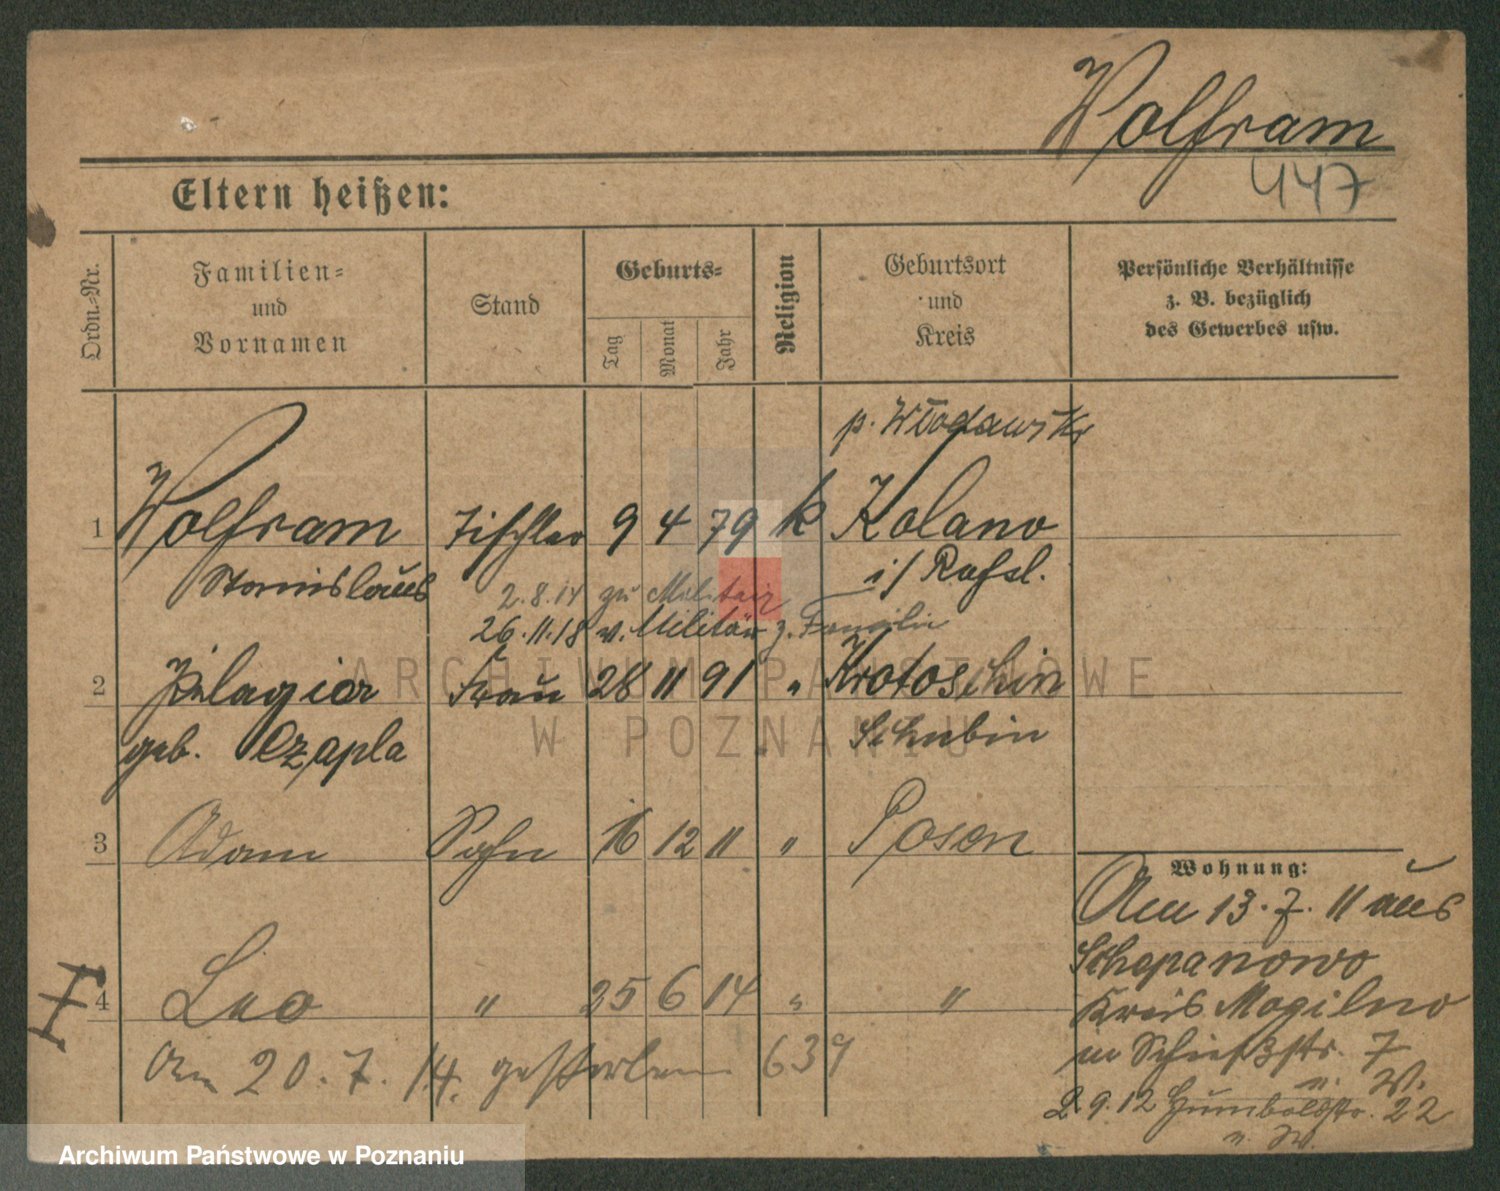 Wolfram
447
Eltern heißen:
Ordn.-Nr.
Familien- und Vornamen
Stand
Geburts-
Tag
Monat
Jahr
Religion
Geburtsort und Kreis
Persönliche Verhältnisse z. B. bezüglich des Gewerbes usw.
p. Włodawsk
1 Wolfram Tischler 9 4 79 k Kolano
Stanislaus i/ Rußl.
2.8.14 zu Militair
26.11.18 v. Militär z. Familie
2 Pelagia Frau 28 11 91 " Krotoschin
geb. Czapla Schubin
3 Adam Sohn 16 12 11 " Posen
4 Leo " 25 6 14 " "
Am 20.7.14. gestorben 639
Wohnung:
Am 13.7.11 aus
Schepanowo
Kreis Mogilno
n. Schießstr. 7
n. W.
2 9.12 Humboldtstr. 22
n. W.
ARCHIWUM PAŃSTWOWE
W POZNANIU
Archiwum Państwowe w Poznaniu